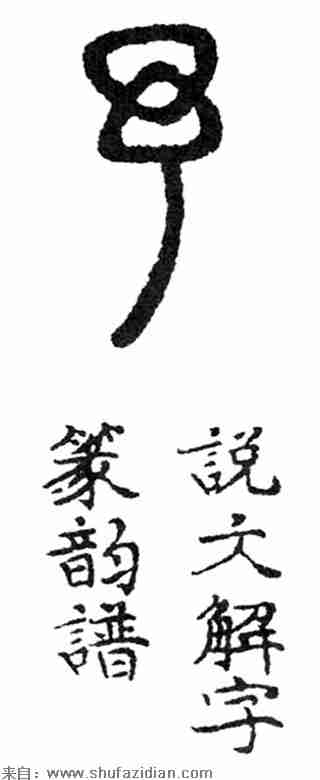 予
説文解字
篆韵譜
来自：www.shufazidian.com